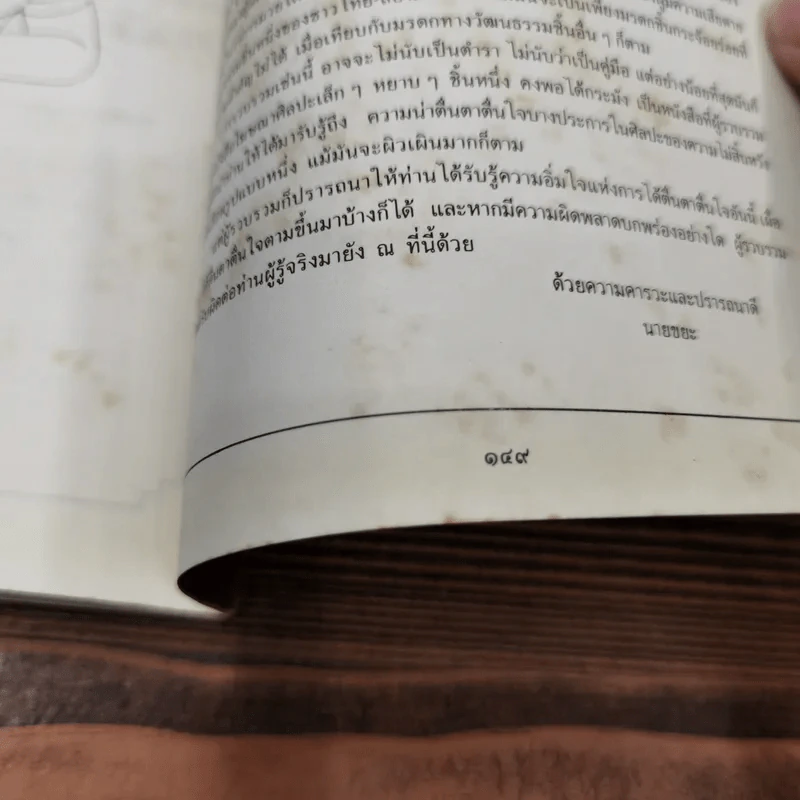 จะเป็นเพียงมรดกชิ้นกระจ้อยร่อยที่
ไม่ได้ เมื่อเทียบกับมรดกทางวัฒนธรรมชิ้นอื่น ๆ ก็ตาม
เช่นนี้ อาจจะไม่นับเป็นตำรา ไม่นับว่าเป็นคู่มือ แต่อย่างน้อยที่สุดมันก็
ศิลปะเล็ก ๆ หยาบ ๆ ชิ้นหนึ่ง คงพอได้กระมัง เป็นหนังสือที่ผู้รวบรวม
ให้ได้มารับรู้ถึง ความน่าตื่นตาตื่นใจบางประการในศิลปะของความไม่สิ้นหวัง
รูปแบบหนึ่ง แม้มันจะผิวเผินมากก็ตาม
ผู้รวบรวมก็ปรารถนาให้ท่านได้รับรู้ความอิ่มใจแห่งการได้ตื่นตาตื่นใจอันนี้
ตื่นใจตามขึ้นมาบ้างก็ได้ และหากมีความผิดพลาดบกพร่องอย่างใด ผู้รวบรวม
ต่อท่านผู้รู้จริงมายัง ณ ที่นี้ด้วย
ด้วยความคารวะและปรารถนาดี
นายขยะ
๑๔๙